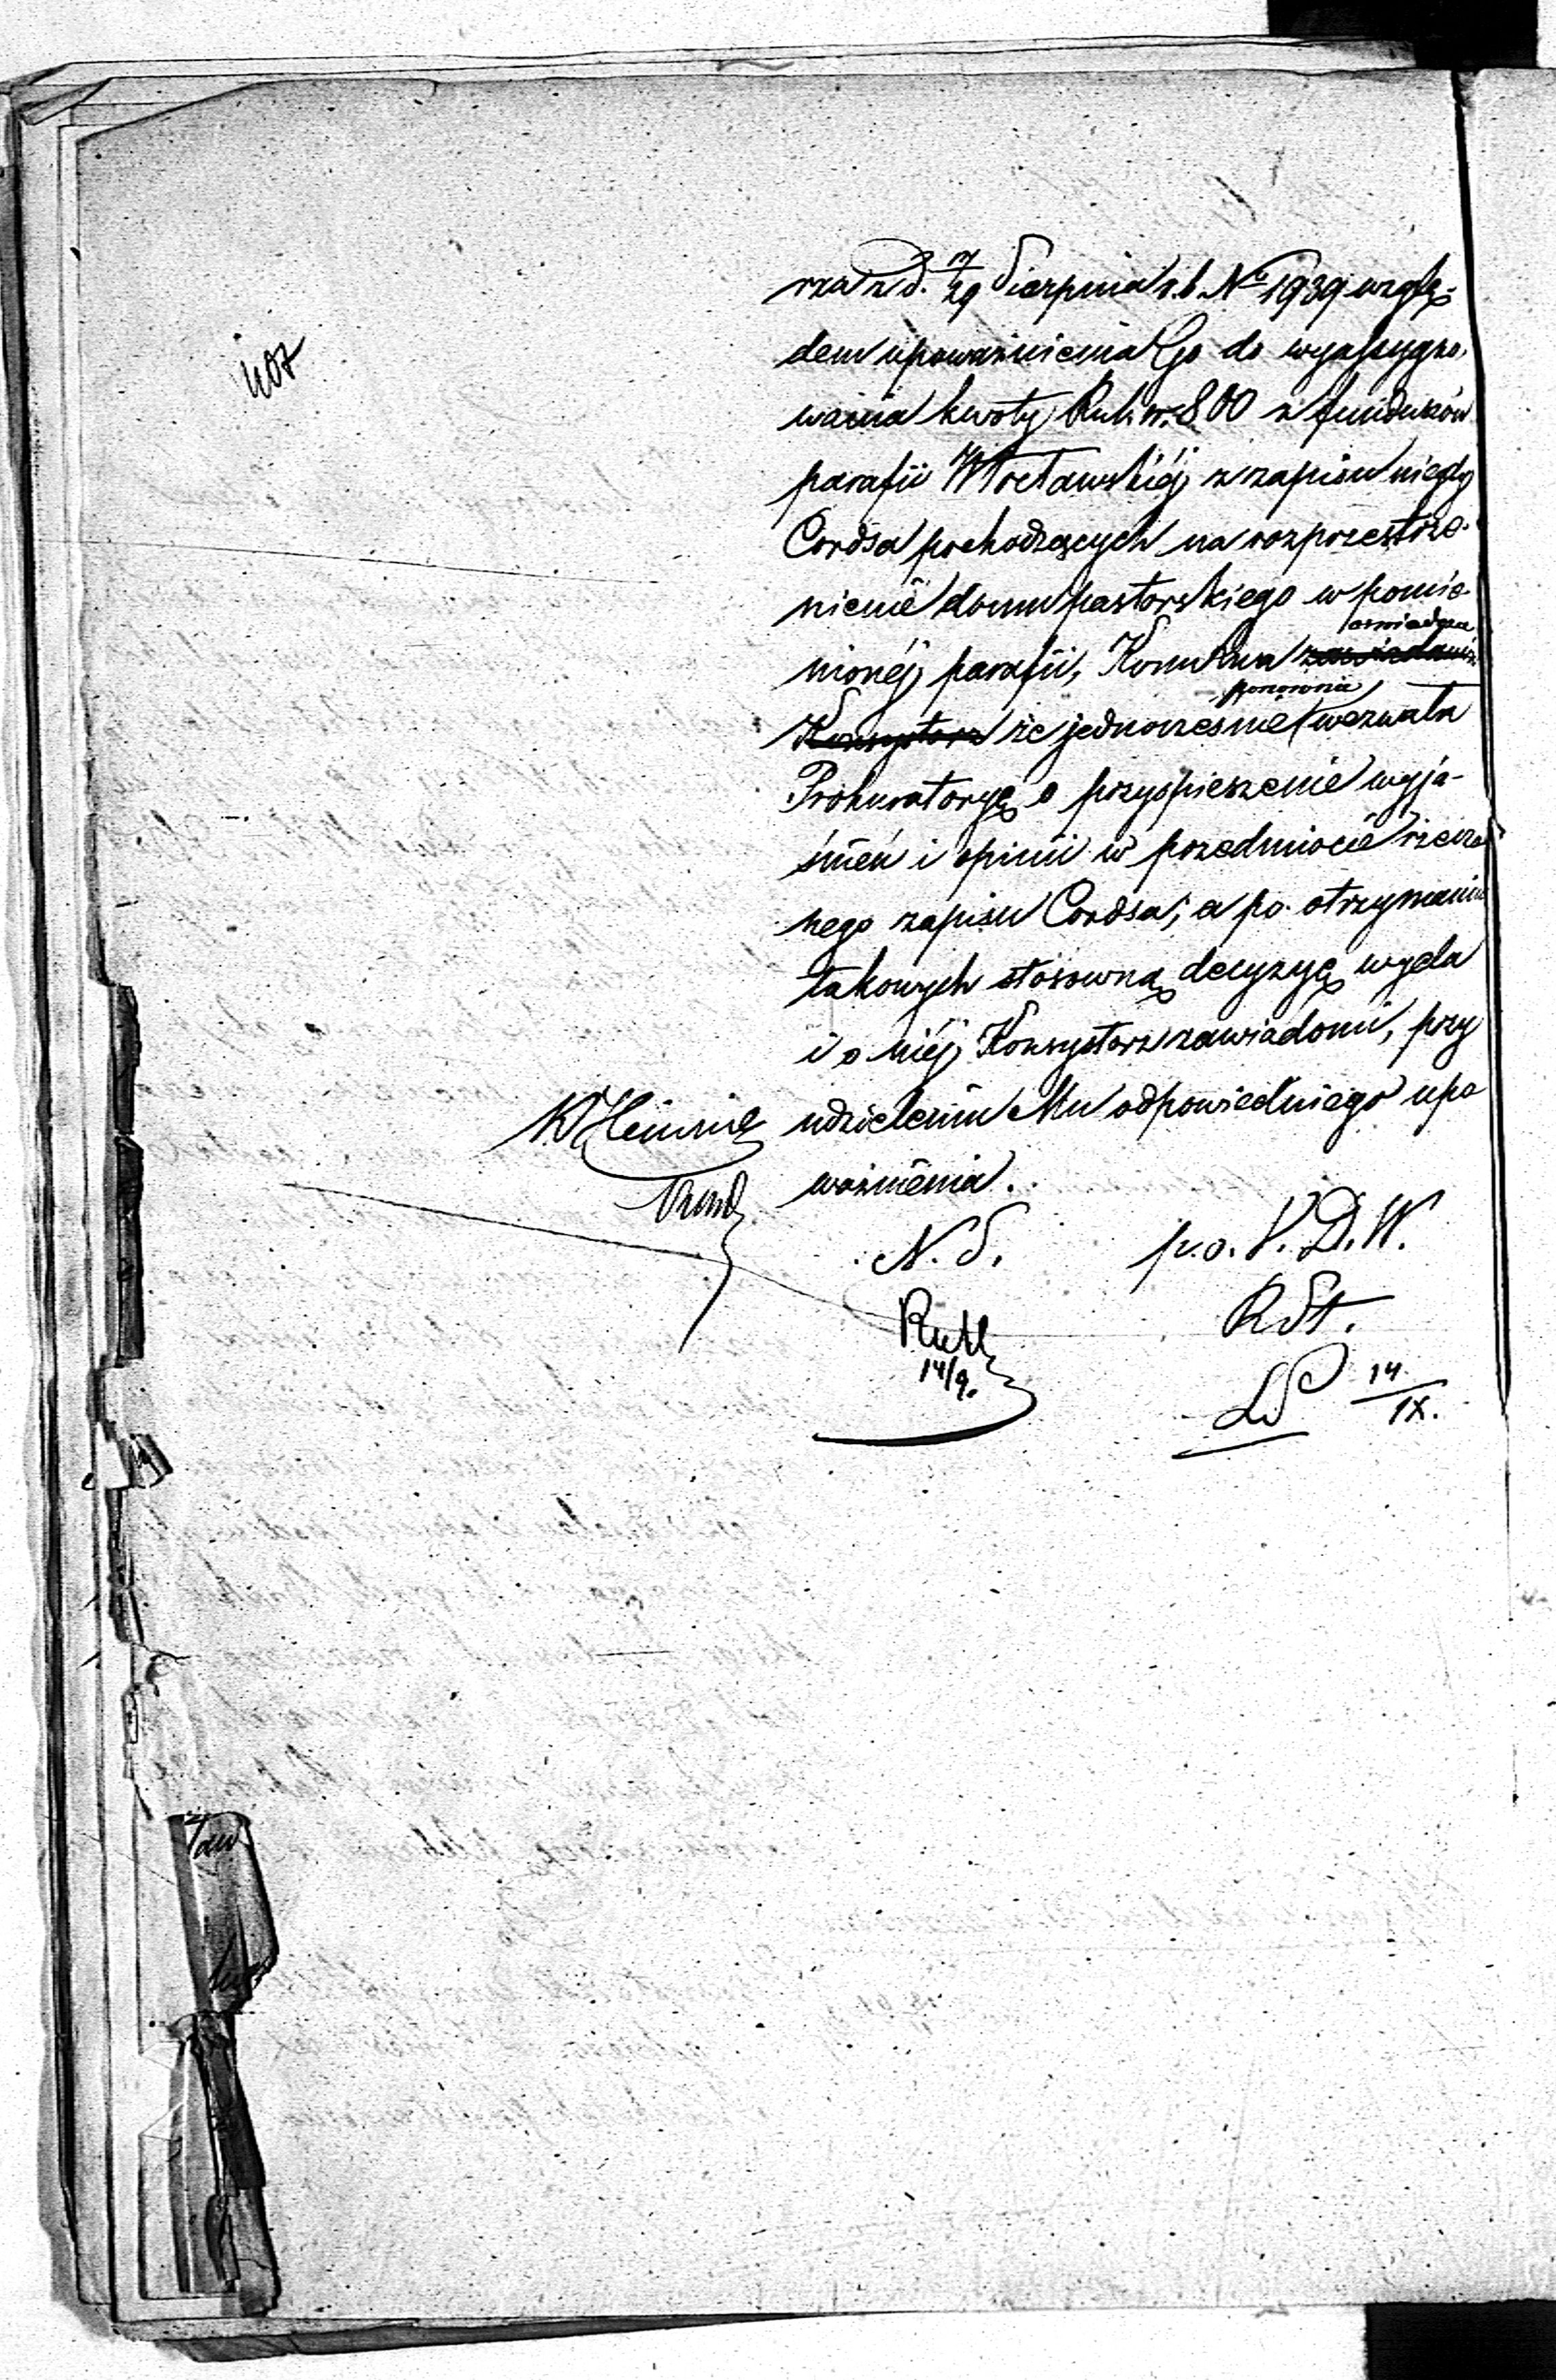 rza z d. 17/29 Sierpnia r.b. No 1939 wzglę-
dem upoważnienia Go do wyassygno-
wania kwoty Rub. sr. 800 z funduszów
parafii Włocławskiéj z zapisu niegdy
Cordsa pochodzących na rozprzestrze-
nienie domu pastorskiego w pomie-
oświadcza
nionéj parafii, Kom. Rzą. zawiadamia
ponownie
Konsystorz że jednocześnie wezwała
Prokuratoryę o przyspieszenie wyja-
śnień i opinii w przedmiocie rzeczo-
nego zapisu Cordsa; a po otrzymaniu
takowych stosowną decyzyę wyda
i o niéj Konsystorz zawiadomi, przy
udzieleniu Mu odpowiedniego upo
ważnienia.
N. S. p.o. V. D. W.
R. St.
14/9.
14/IX.